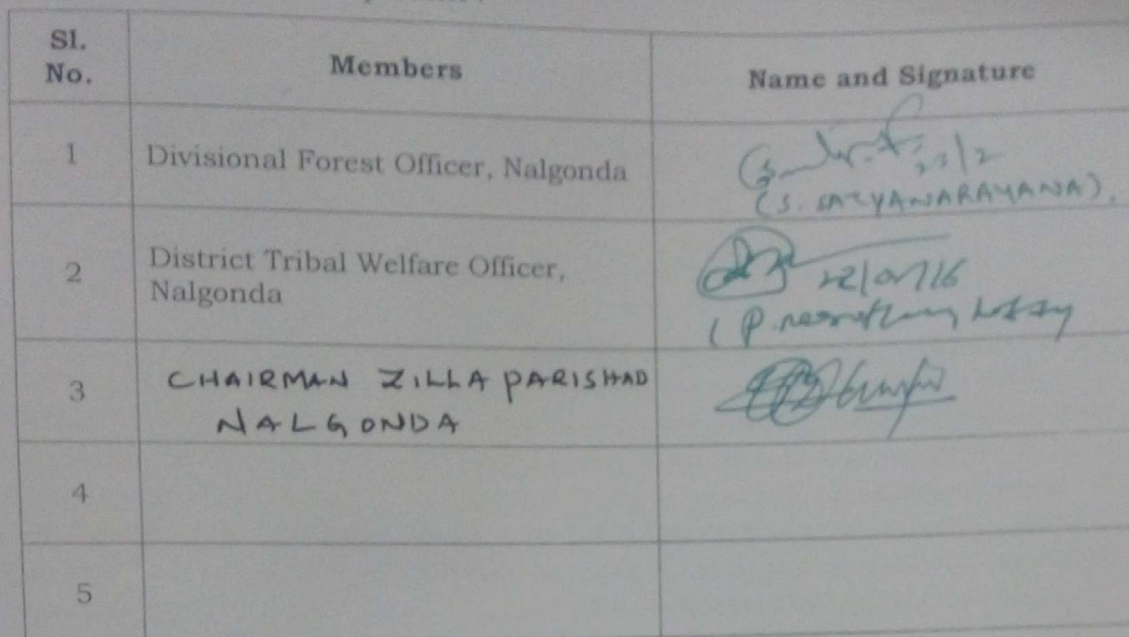 Sl.
No.
Members
Name and Signature
1
Divisional Forest Officer, Nalgonda
23/2
(S. SATYANARAYANA).
2
District Tribal Welfare Officer,
Nalgonda
(P.
3
CHAIRMAN ZILLA PARISHAD
NALGONDA
4
5